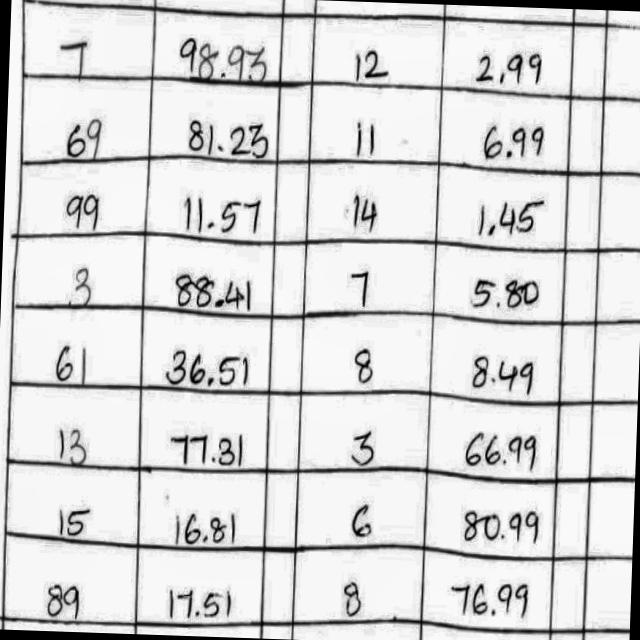 7 98.93 12 2.99
69 81.23 11 6.99
99 11.57 14 1.45
3 88.41 7 5.80
61 36.51 8 8.49
13 77.31 3 66.99
15 16.81 6 80.99
89 17.51 8 76.99